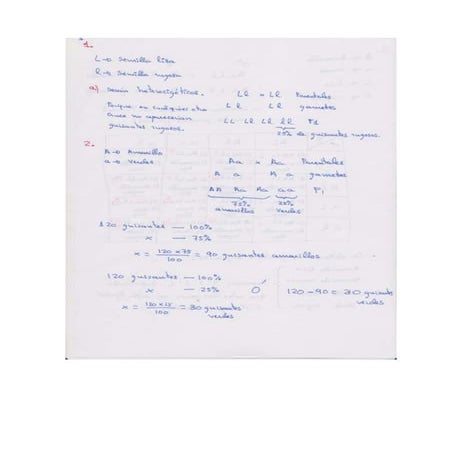 1.
L → Semilla lisa
R → Semilla rugosa
a) Serían heterocigóticos. LR × LR Parentales
Porque en cualquier otro L R L R gametos
cruce no aparecerían LL LR LR RR F1
guisantes rugosos. 25% de guisantes rugosos.
2.
A → Amarilla
a → Verdes Aa × Aa Parentales
A a A a gametos
AA Aa Aa aa F1
75% amarillos 25% verdes
120 guisantes — 100%
x — 75%
x = 120 x 75 / 100 = 90 guisantes amarillos
120 guisantes — 100%
x — 25% O' 120 - 90 = 30 guisantes verdes
x = 120 x 25 / 100 = 30 guisantes verdes